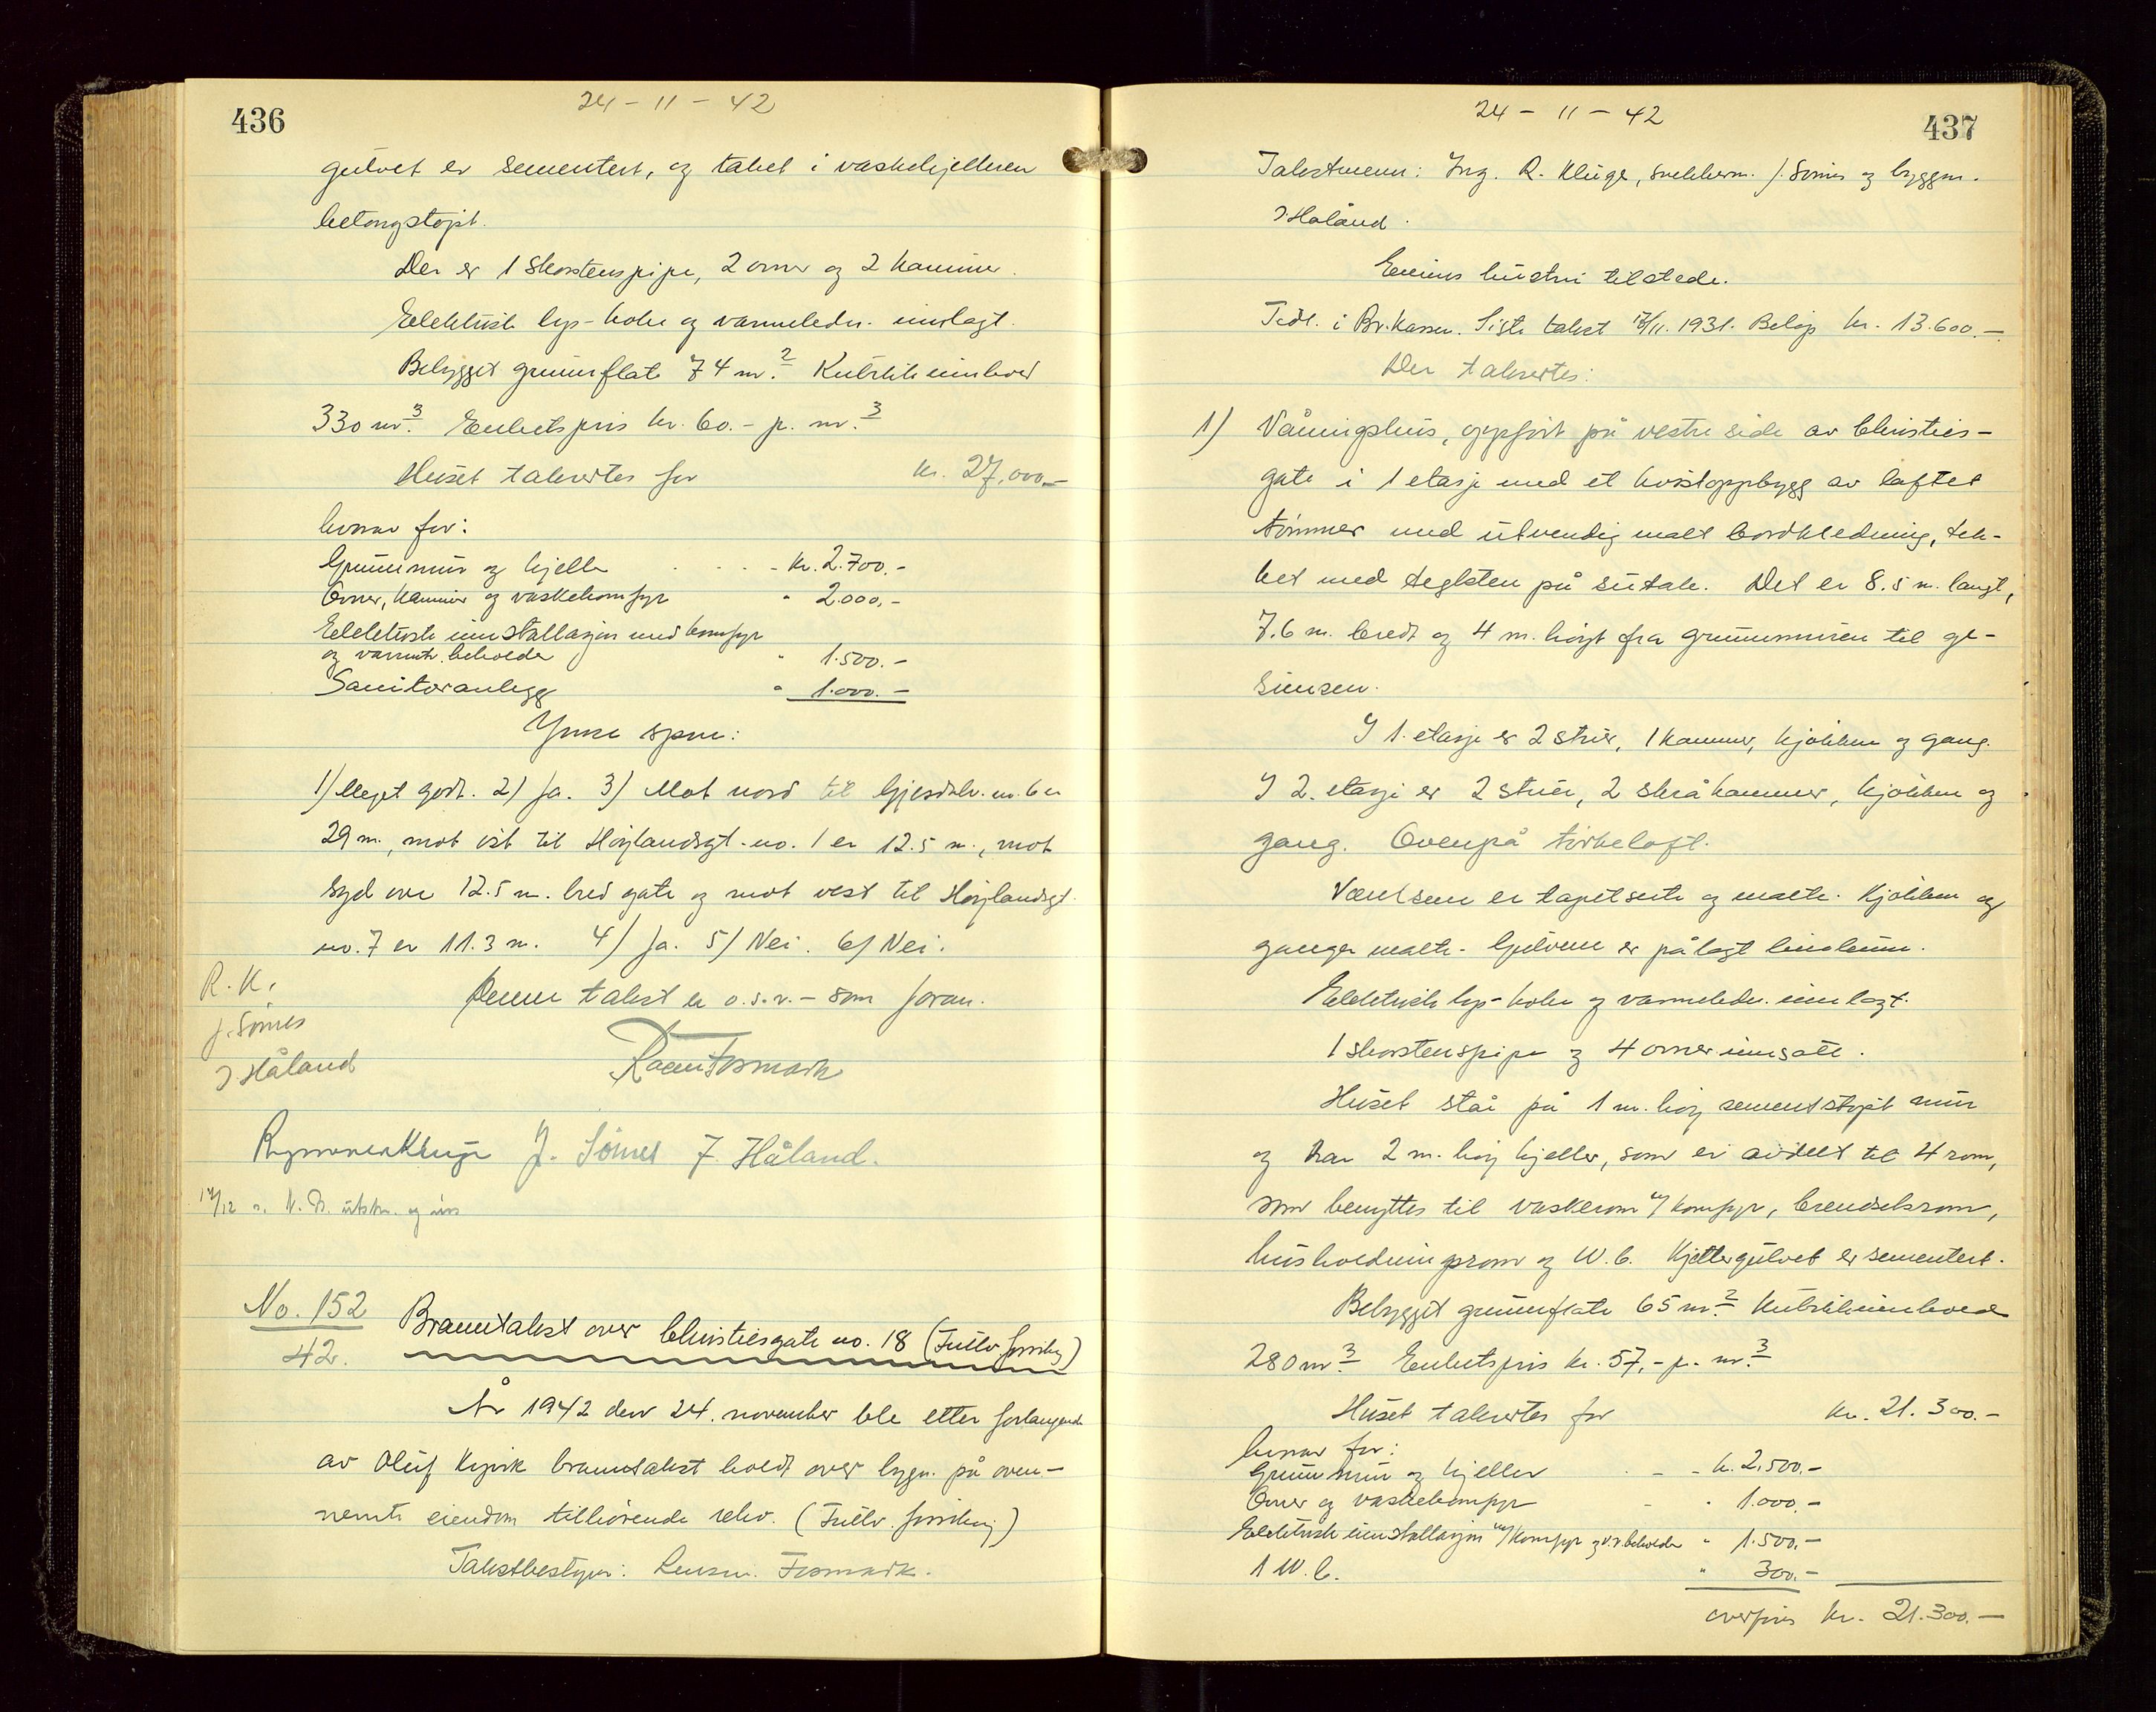 436
24 - 11 - 42
gulvet er sementert, og taket i vaskekjelleren
betongstøpt.
Der er 1 skorstenspipe, 2 ovner og 2 kaminer.
Elektrisk lys- koke og varmeledn. innlagt.
Bebygget grunnflate 74 m.² Kubikkinnhold
330 m.³ Enhetspris kr. 60.- p. m.³
Huset taksertes for kr. 27.000.-
hvorav for:
Grunnmur og kjeller - kr. 2.700.-
Ovner, kaminer og vaskekomfyr " 2.000.-
Elektrisk innstallasjon med komfyr
og varmtv. beholder " 1.500.-
Sanitæranlegg " 1.000.-
Ymse spm:
1) Meget godt. 2) Ja. 3) Mot nord til Gjesdalv. no. 6 er
29 m., mot øst til Høylandsgt. no. 1 er 12.5 m., mot
syd over 12.5 m. bred gate og mot vest til Høylandsgt.
no. 7 er 11.3 m. 4) Ja. 5) Nei. 6) Nei.
R. K.
J. Sømes
J. Håland
Denne takst er o.s.v. - som foran.
Fosmark
J. Sømes J. Håland.
No. 152
42.
Branntakst over Christiesgate no. 18 (Fullv. forsikr.)
År 1942 den 24. november ble etter forlangende
av Oluf Kyvik branntakst holdt over bygn. på oven-
nevnte eiendom tilhørende rekv. (Fullv. forsikring)
Takstbestyrer: Lensm. Fosmark.
437
24 - 11 - 42
Takstmenn: Ing. R. Kluge, snekkerm. J. Sømes og byggm.
J Håland.
Eierens hustru tilstede.
Tidl. i Br.kassen. Siste takst 17/11. 1931. Beløp kr. 13.600.-
Der taksertes:
1) Våningshus, oppført på vestre side av Christies-
gate i 1 etasje med et kvistoppbygg av laftet
tømmer med utvendig malt bordkledning, tek-
ket med teglsten på sutak. Det er 8.5 m. langt,
7.6 m. bredt og 4 m. høyt fra grunnmuren til ge-
simsen.
I 1. etasje er 2 stuer, 1 kammer, kjøkken og gang.
I 2. etasje er 2 stuer, 2 skråkammer, kjøkken og
gang. Ovenpå tørkeloft.
Værelsene er tapetserte og malte. Kjøkken og
ganger malte. Gulvene er pålagt linoleum.
Elektrisk lys- koke og varmeledn. innlagt.
1 skorstenspipe og 4 ovner innsatt.
Huset står på 1 m. høy sementstøpt mur
og har 2 m. høy kjeller, som er avdelt til 4 rom,
som benyttes til vaskerom m/ komfyr, brendselsrom,
husholdningsrom og W.C. Kjellergulvet er sementert.
Bebygget grunnflate 65 m.² Kubikkinnhold
280 m.³ Enhetspris kr. 57,- p. m.³
Huset taksertes for kr. 21.300.-
hvorav for:
Grunnmur og kjeller - - kr. 2.500.-
Ovner og vaskekomfyr - " 1.000.-
Elektrisk innstallasjon m/ komfyr og v.v. beholder " 1.500.-
1 W.C. " 300.-
overføres kr. 21.300.-